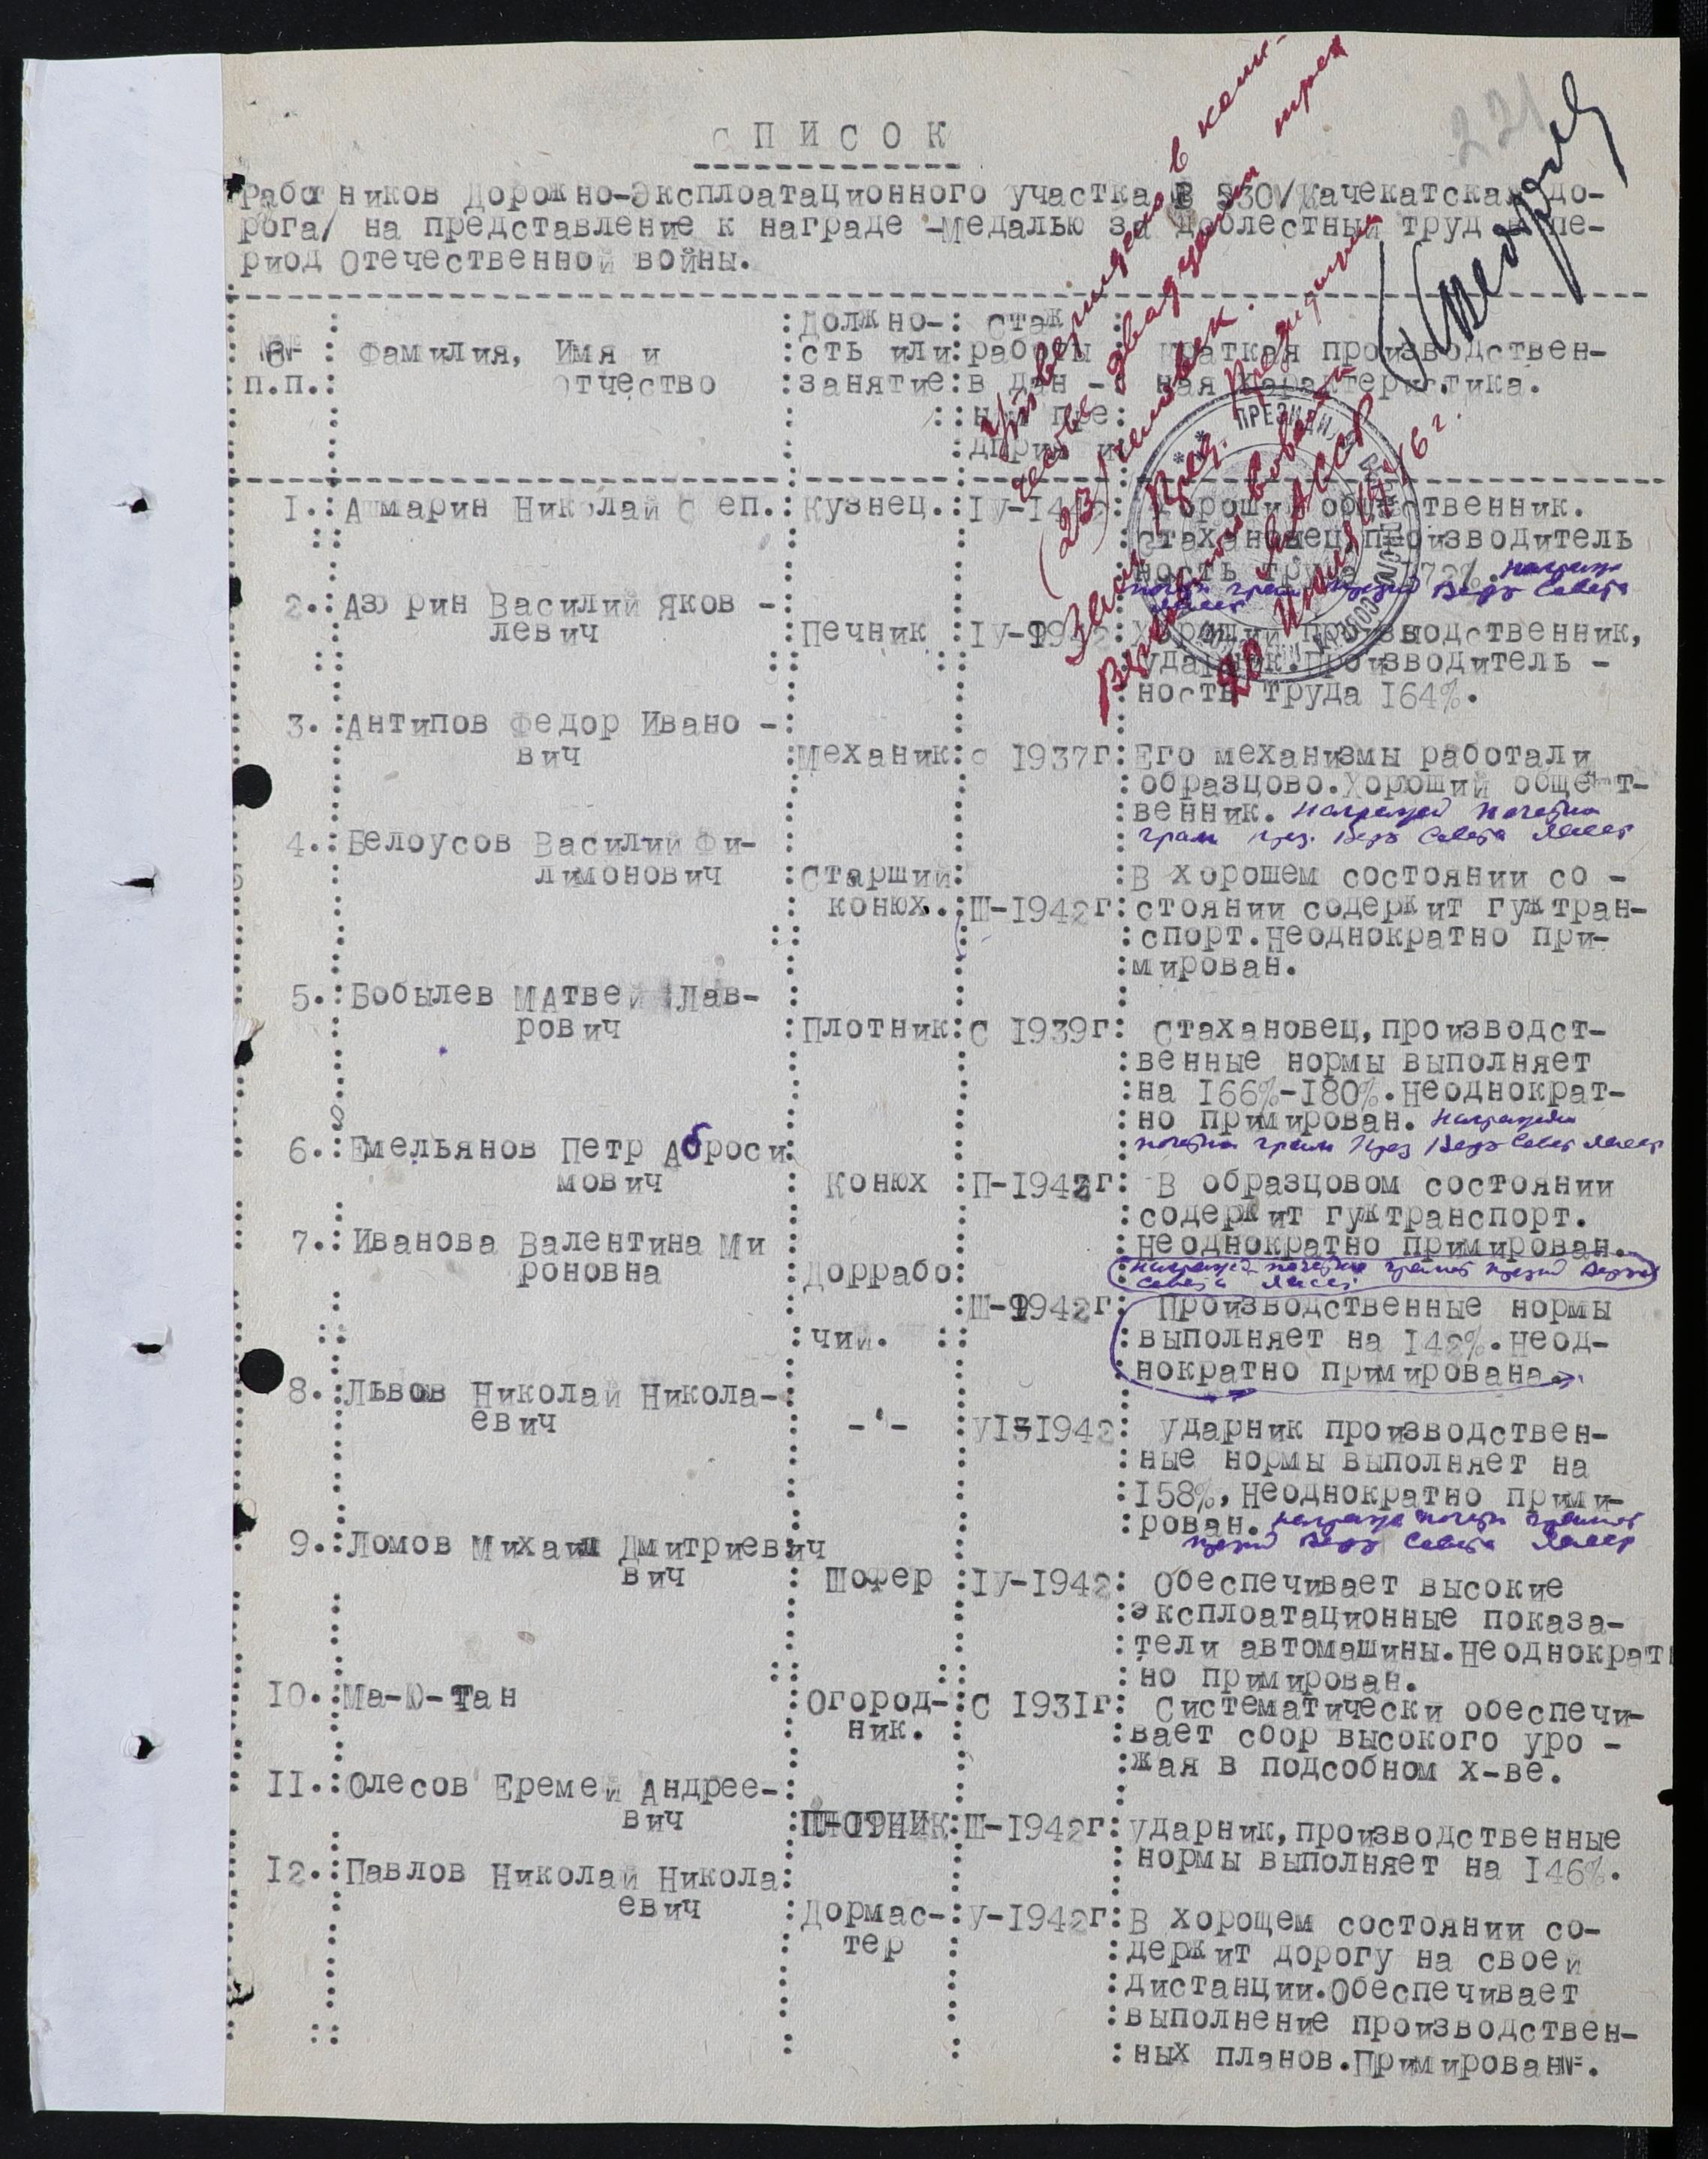 СПИСОК
Работников Дорожно-Эксплоатационного участка В 530/Качекатская до-
рога/ на представление к награде -Медалью за доблестный труд в пе-
риод Отечественной войны.
221
п.п. Фамилия, Имя и отчество
Должно-
сть или
занятие
Стаж
работы
в дан -
Краткая производствен-
ная характеристика.
Утверждено в коли-
честве двадцати трех
(23) человек.
Зам. Пред. Президиума
Верховного Совета
ЯАССР
1. Ашмарин Николай Степ. Кузнец. IУ-1942 Хороший общественник.
Стахановец, производитель
ность труда 172%.
2. Азорин Василий Яков -
левич Печник IУ-1942 Хороший производственник,
ударник.Производитель -
ность труда 164%.
3. Антипов Федор Ивано -
вич Механик с 1937г Его механизмы работали
образцово.Хороший общест-
венник. Награжден почетн
грам през. Верх Совета ЯАССР
4. Белоусов Василий Фи-
лимонович Старший В хорошем состоянии со -
конюх. Ш-1942г стоянии содержит гужтран-
спорт.Неоднократно при-
мирован.
5. Бобылев МАтвей Лав-
рович Плотник С 1939г Стахановец,производст-
венные нормы выполняет
на 166%-180%.Неоднократ-
но примирован. Награжден
почетн грам През Верх Совет ЯАССР
6. Емельянов Петр Аброси
мович Конюх П-1942г В образцовом состоянии
содержит гужтранспорт.
Неоднократно примирован.
7. Иванова Валентина Ми
роновна Доррабо
Ш-1942г Производственные нормы
чий. выполняет на 142%.Неод-
нократно примирована.
8. Львов Николай Никола-
евич -"- УI-1942 Ударник производствен-
ные нормы выполняет на
158%,Неоднократно прими-
рован.
през Верх Совета ЯАССР
9. Ломов Михаил Дмитриевич
вич Шофер IУ-1942 Обеспечивает высокие
эксплоатационные показа-
тели автомашины.Неоднократ
но примирован.
10. Ма-Ю-Тан Огород- С 1931г Систематически обеспечи-
ник. вает сбор высокого уро -
жая в подсобном х-ве.
11. Олесов Еремей Андрее-
вич Плотник Ш-1942г ударник,производственные
нормы выполняет на 146%.
12. Павлов Николай Никола
евич Дормас- У-1942г В хорощем состоянии со-
тер держит дорогу на своей
дистанции.Обеспечивает
выполнение производствен-
ных планов.Примирован.